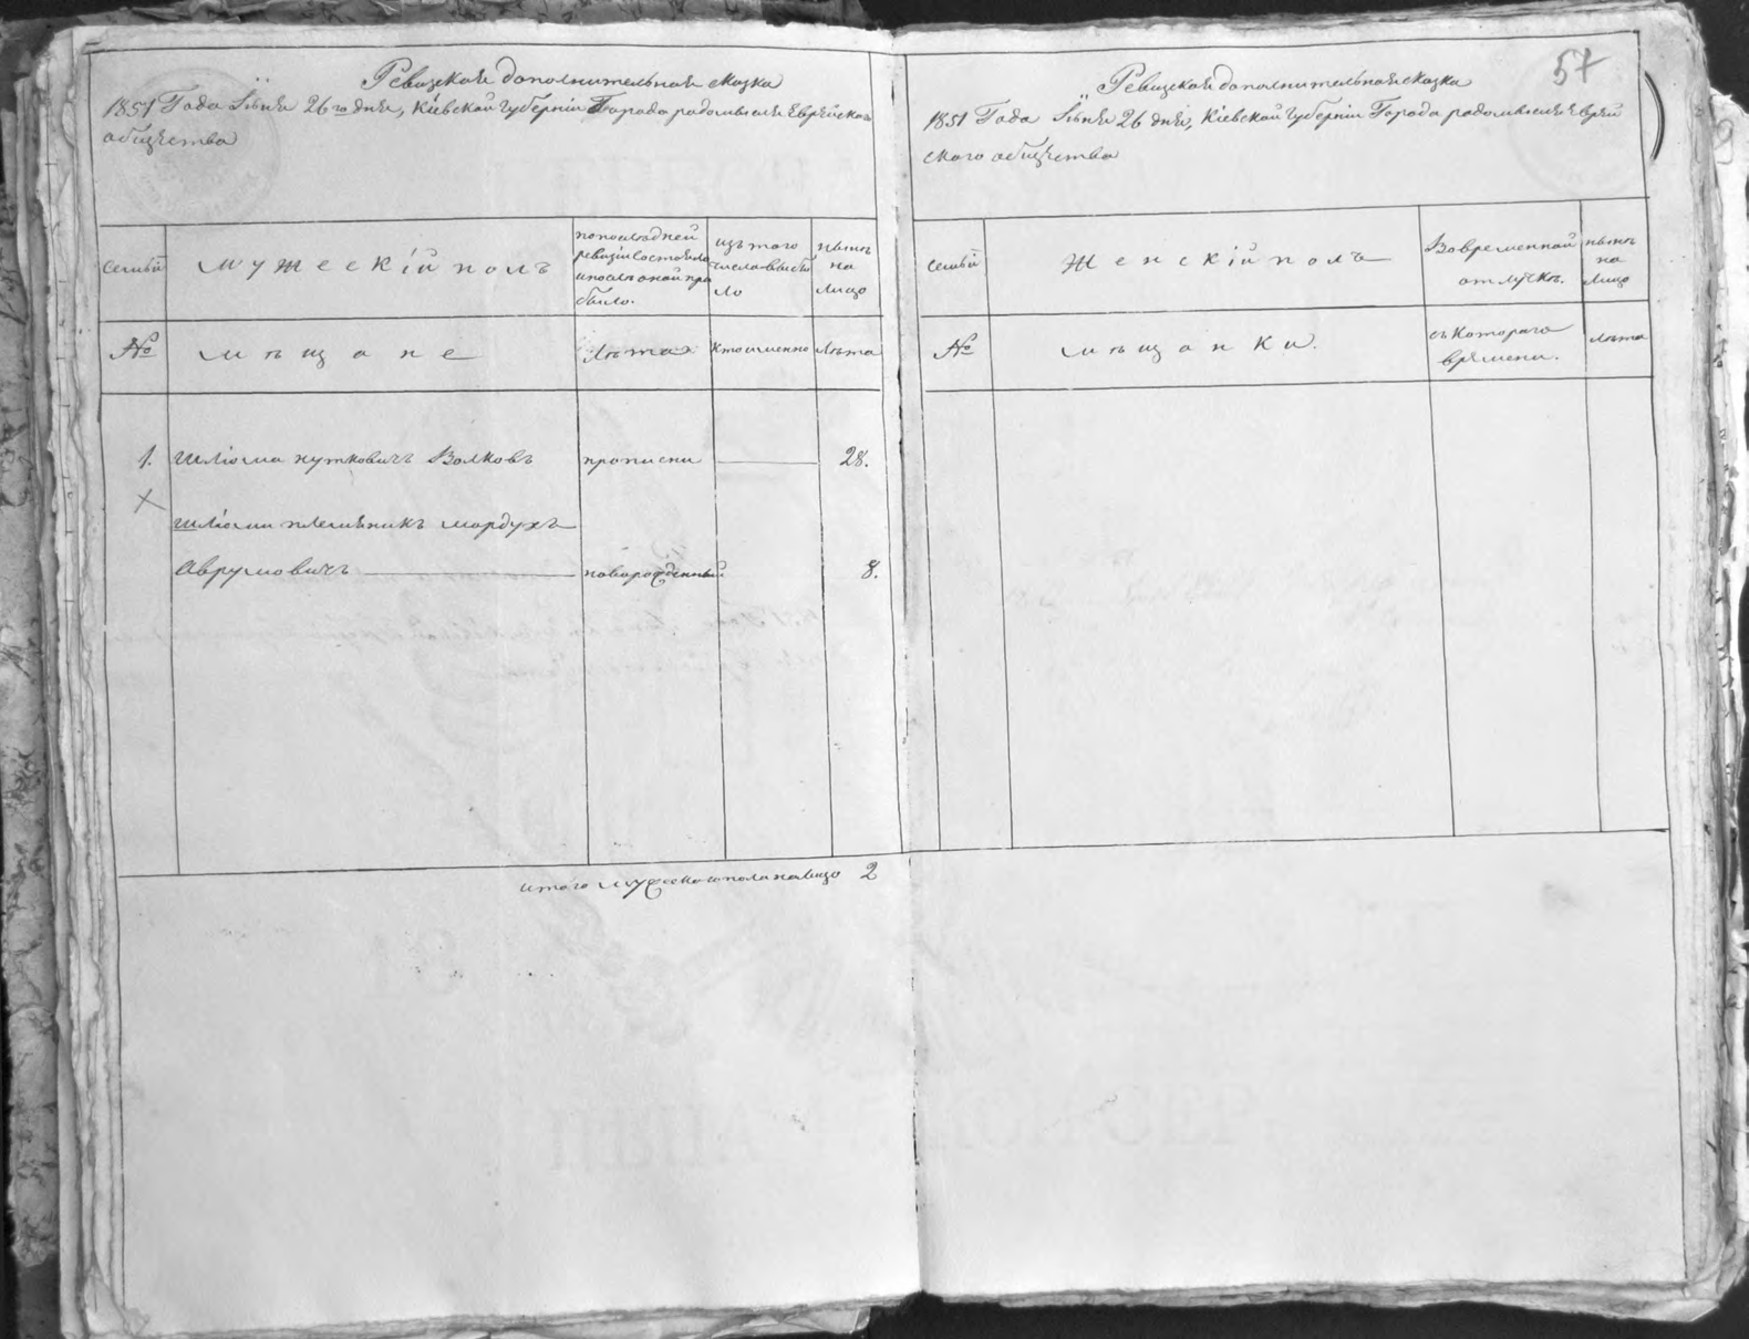 Ревизская дополнительная сказка
1851 Года Іюня 26го дня, Кіевской Губерніи Города радомысля Еврейскаго
общества
Семьи
мужескій полъ
по последней
ревизіи состояло
и после оной при
было.
изъ того
числа выбы
ло
ныне
на
лицо
№
мѣщане
лѣта
кто именно
лѣта
1. Шліома нутковичъ Волковъ прописни 28.
Шліомы племяникъ мордухъ
Аврумовичъ новорожденный 8.
итого мужеска пола налицо 2
57
Ревизская дополнительная сказка
1851 Года Іюня 26 дня, Кіевской Губерніи Города радомысля Еврей
ского общества
семьи
Женскій полъ
Вовременной
отлучке.
ныне
на
лицо
№
мѣщанки.
съ котораго
времени.
лѣта